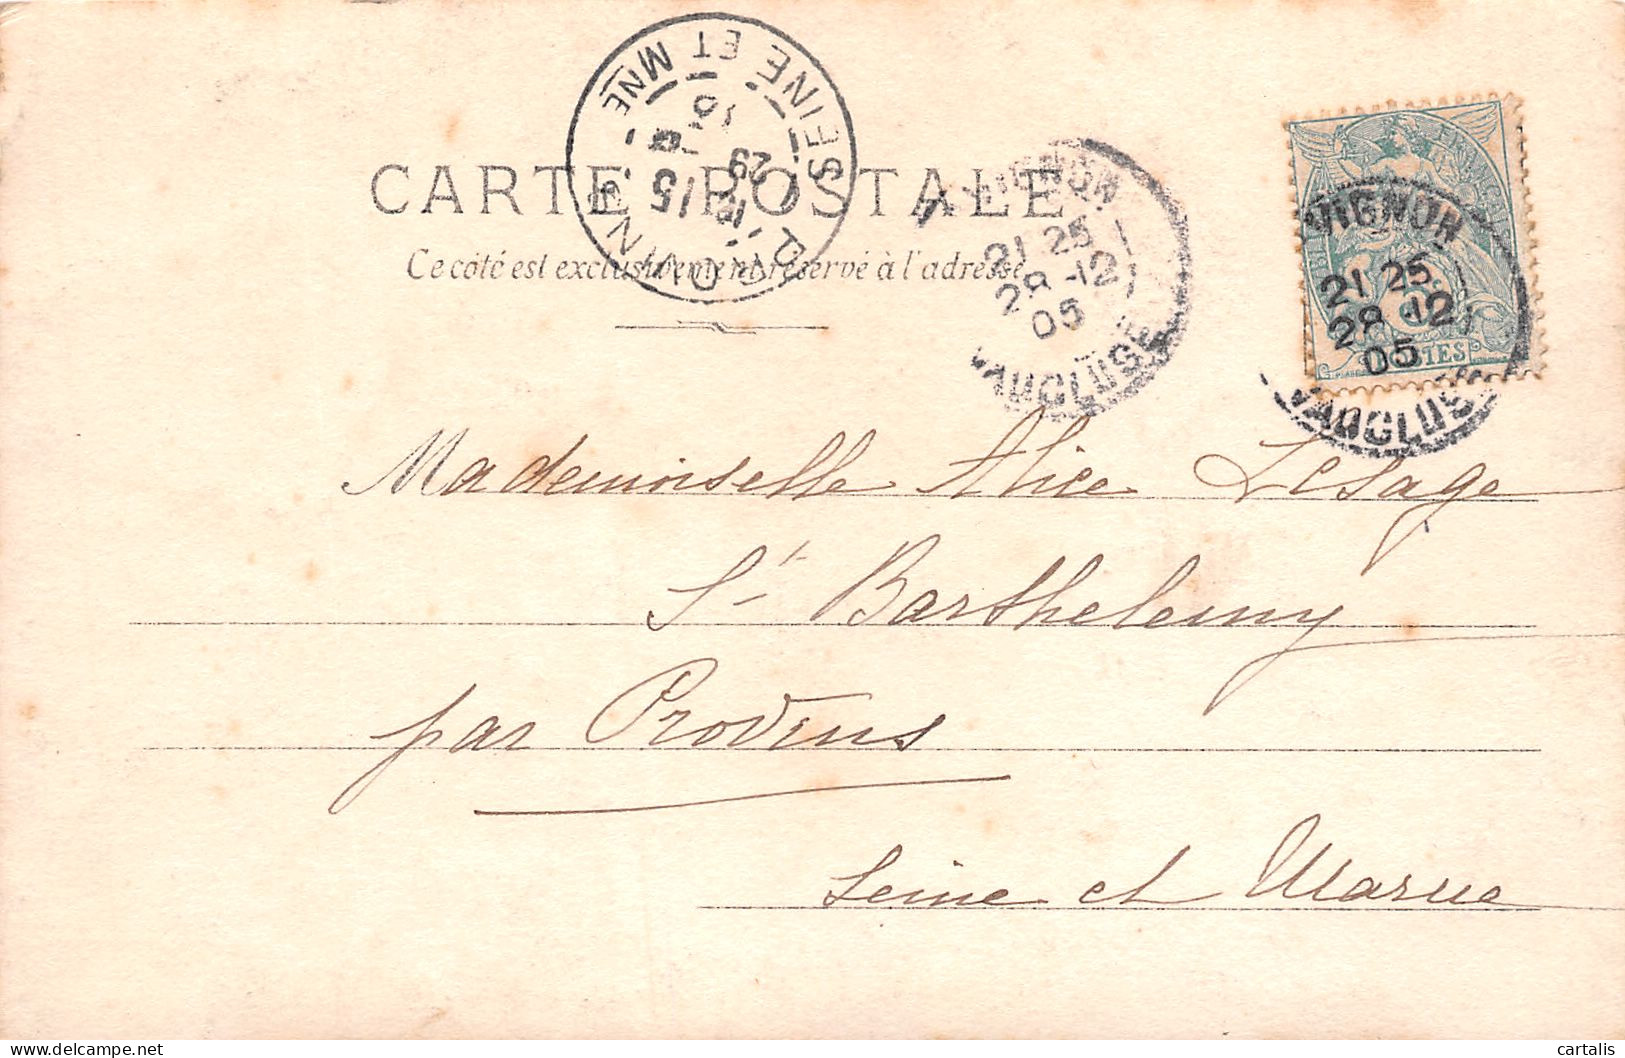 CARTE POSTALE
Ce côté est exclusivement réservé à l'adresse
PROVINS
SEINE ET MNE
15
29
12
05
AVIGNON
21 25
28 -12
05
VAUCLUSE
VIGNON
21 25
28 -12
05
VAUCLUS
POSTES
Mademoiselle Alice Lesage
St Barthelemy
par Provins
Seine et Marne
delcampe.net
cartalis